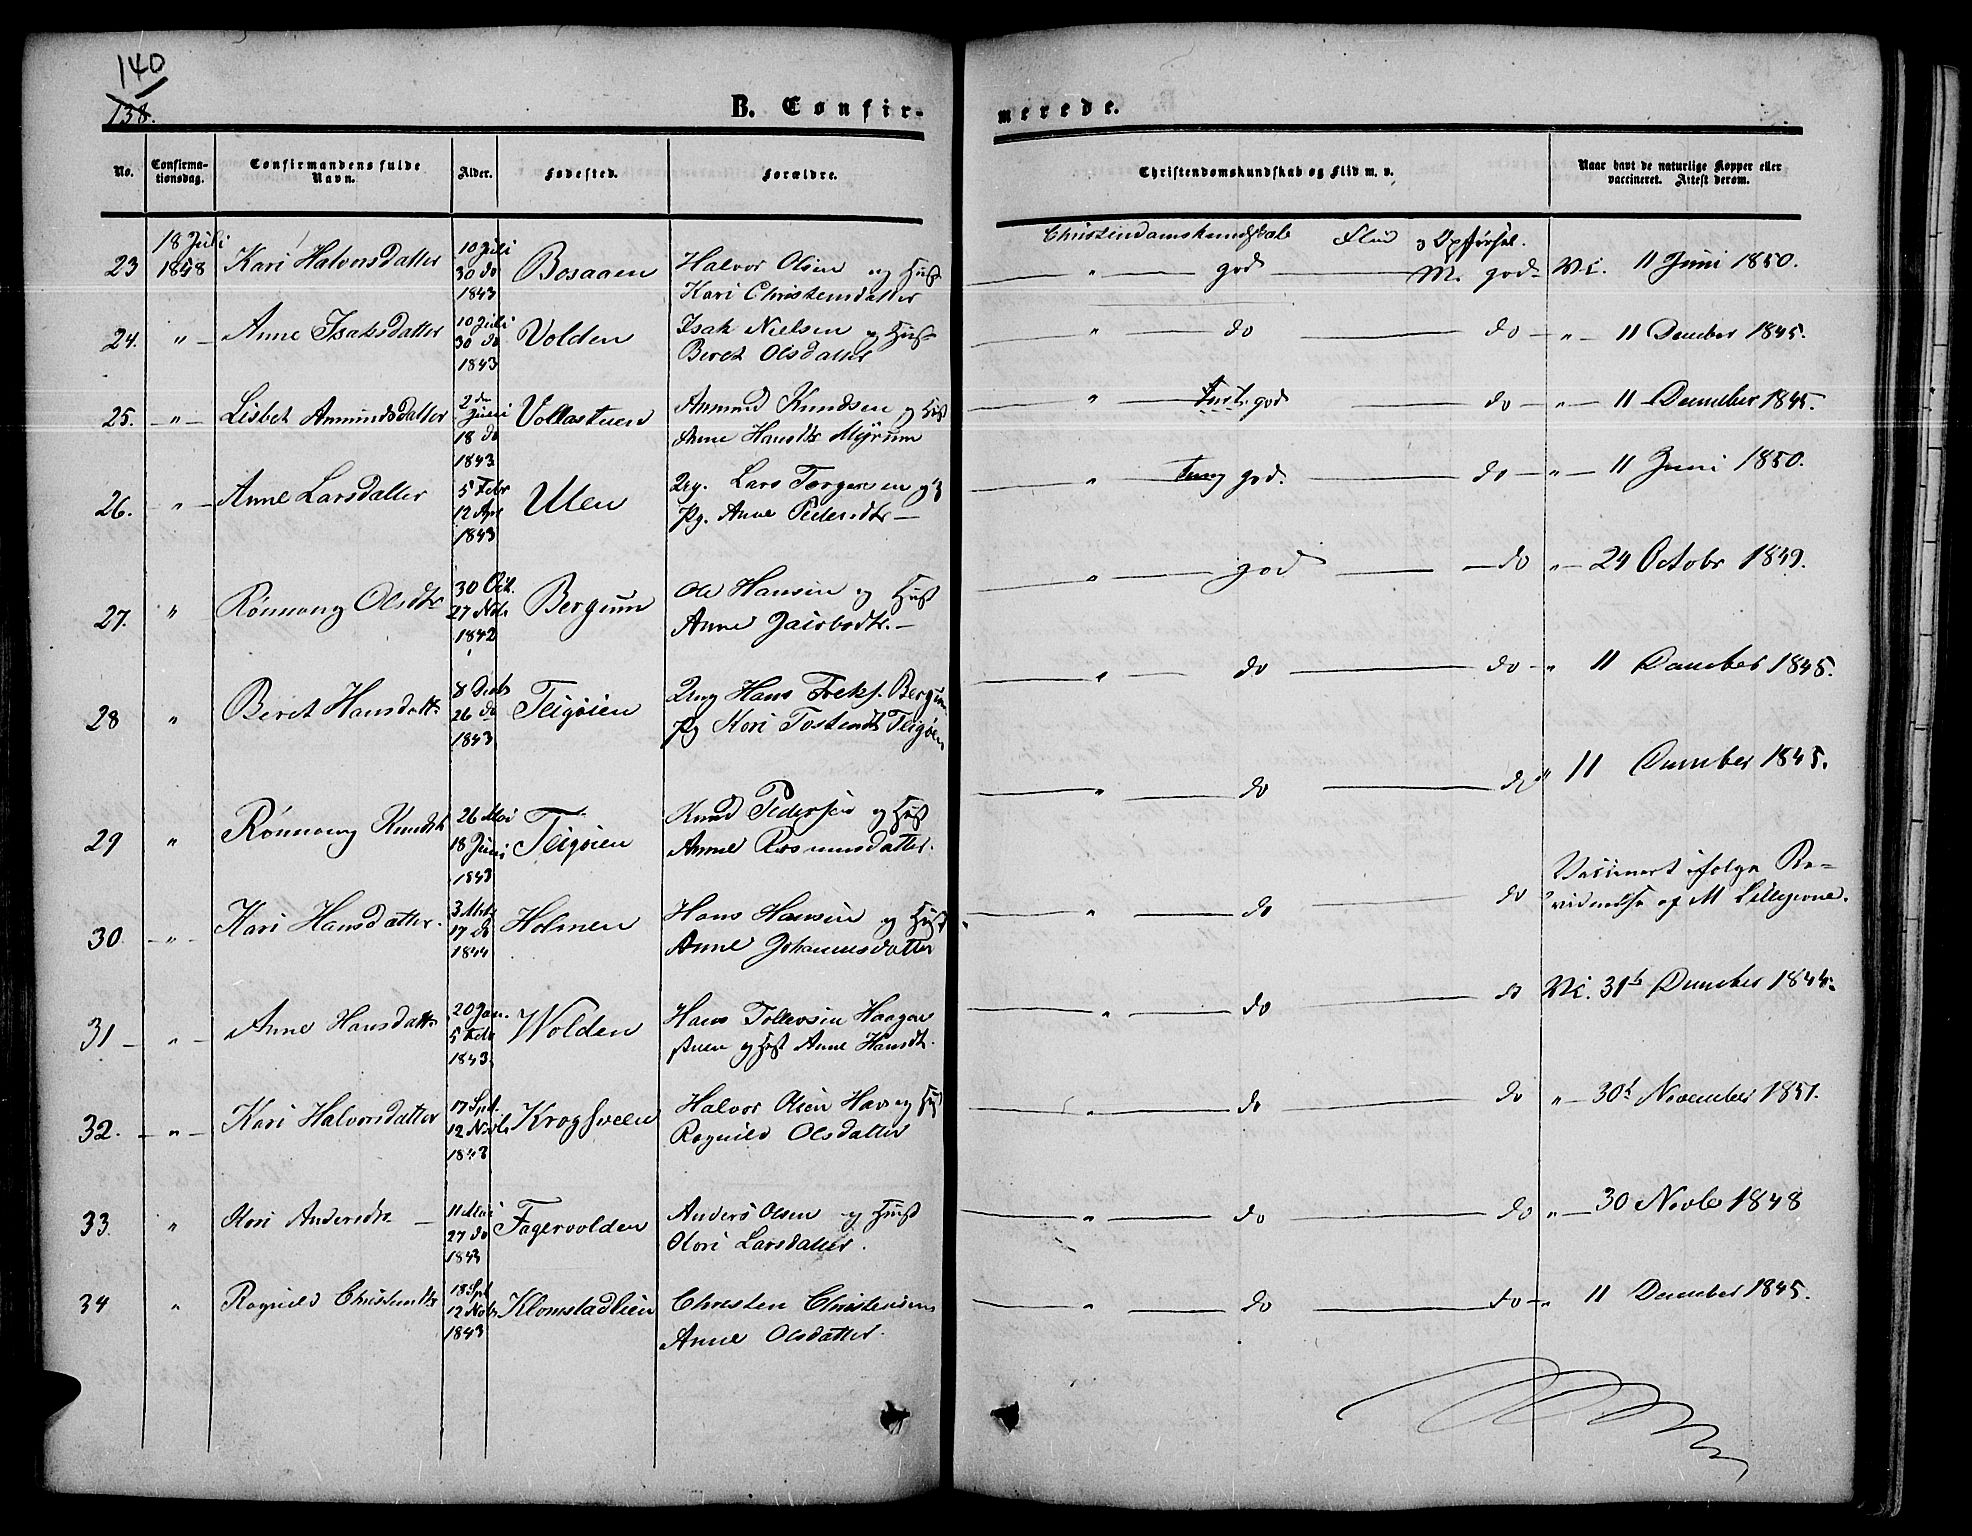 140
138.
B. Confir-
merede.
No.
Confirma-
tionsdag.
Confirmandens fulde
Navn.
Alder.
Fødested.
Forældre.
Christendomskundskab og Flid m. v.
Naar havt de naturlige Kopper eller
vaccineret. Attest derom.
Christendomskundskab Flid Opførsel.
23 18 Juli 1858 Kari Halvorsdatter 10 Juli 30 do 1843 Bosaaen Halvor Olsen og Hust
Kari Christensdatter
" god M. god Vc. 11 Juni 1850.
24. " Anne Isaksdatter 10 Juli 30 do 1843 Volden Isak Nielsen og Hust
Beret Olsdatter
" do do " 11 December 1845.
25. " Lisbet Amundsdatter 2 Juni 18 do 1843 Vollastuen Amund Knudsen og Hust
Anne Hansdtr Myrum
" god do " 11 December 1845.
26. " Anne Larsdatter 5 Febr 12 Apr 1843 Ulen Ung. Lars Torgersen og
Pg. Anne Pedersdtr
" god. do " 11 Juni 1850.
27. " Rønnaug Olsdtr 30 Oct. 27 Nobr 1842 Bergum Ole Hansen og Hust
Anne Jacobsdtr.
" god do " 24 Octobr 1849.
28 " Beret Hansdattr 8 26 do 1843 Teigøien Ung Hans Bergum
Pg Kari Tostensdtr Teigøien
" do do " 11 December 1845.
29 " Rønnaug Knudsdtr 26 Mai 18 Juni 1843 Teigøien Knud Pedersen og Hust
Anne Rasmusdatter.
" do do " 11 December 1845.
30. " Kari Hansdatter. 3 Mrts 17 do 1844 Holmen Hans Hansen og Hust
Anne Johannesdatter
" do do Vaccineret ifølge Be-
vidnelse af M Lillegeone.
31 " Anne Hansdattr 20 Jan. 5 Feb 1843 Wolden Hans Tollevsen Haagen
stuen og Hust Anne Hansdtr.
" do do Vc. 31t December 1844.
32. " Kari Halvorsdatter 17 Spt. 12 Novbr 1843 Krogsveen Halvor Olsen Hav og Hust
Ragnild Olsdatter
" do do " 30t November 1851.
33. " Kari Andersdtr 11 Mai 27 do 1843 Fagervolden Anders Olsen og Hust
Kari Larsdatter.
" do do " 30 Novbr 1848
34 " Ragnild Christensdtr 18 Spt 12 Nobr 1843 Klomstadlien Christen Christensen
Anne Olsdatter.
" do do " 11 December 1845.